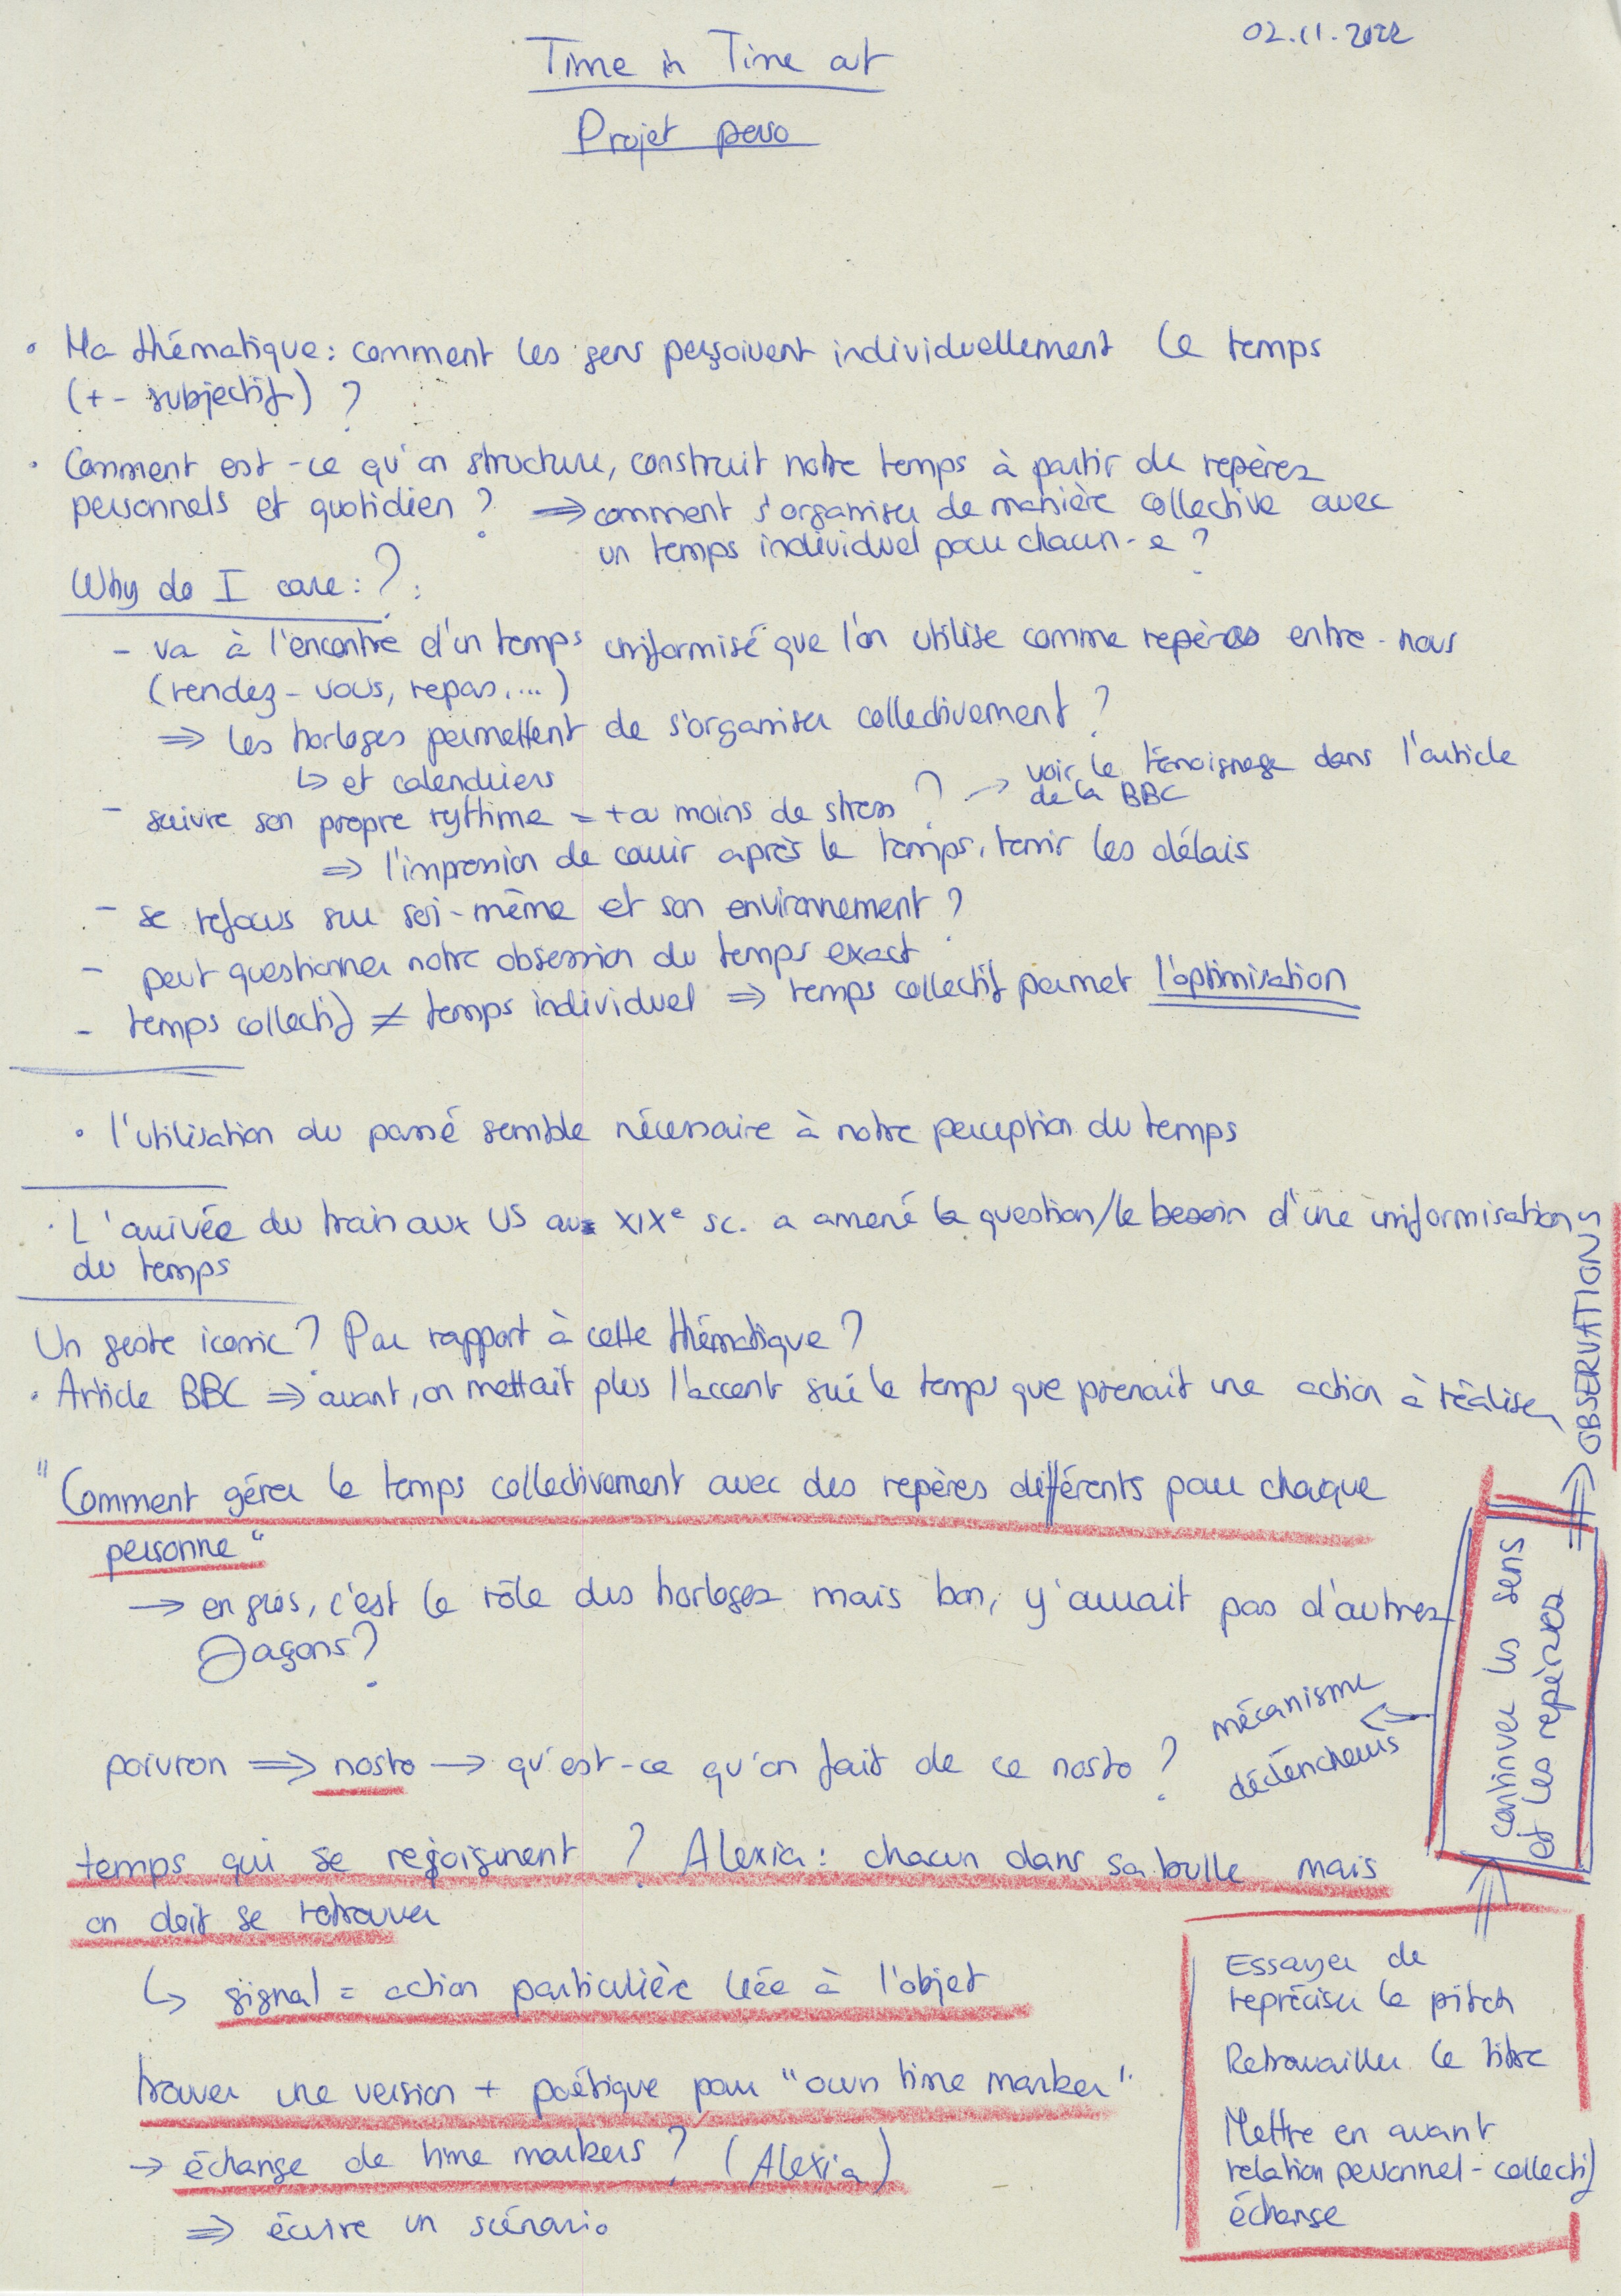 02.11.2022
Time in Time out
Projet perso
• Ma thématique : comment les gens perçoivent individuellement le temps
(+ - subjectif) ?
• Comment est-ce qu'on structure, construit notre temps à partir de repères
personnels et quotidien ? ⇒ comment s'organiser de manière collective avec
un temps individuel pour chacun-e ?
Why do I care : ? :
- va à l'encontre d'un temps uniformisé que l'on utilise comme repères entre-nous
(rendez-vous, repas, ...)
⇒ les horloges permettent de s'organiser collectivement ?
↳ et calendriers
- suivre son propre rythme = + ou moins de stress ? → voir le témoignage dans l'article
de la BBC
⇒ l'impression de courir après le temps, tenir les délais
- se refocus sur soi-même et son environnement ?
- peut questionner notre obsession du temps exact
- temps collectif ≠ temps individuel ⇒ temps collectif permet l'optimisation
• l'utilisation du passé semble nécessaire à notre perception du temps
• L'arrivée du train aux US au XIXe sc. a amené la question/le besoin d'une uniformisation
du temps
Un geste iconic ? Par rapport à cette thématique ?
• Article BBC ⇒ avant, on mettait plus l'accent sur le temps que prenait une action à réaliser
"Comment gérer le temps collectivement avec des repères différents pour chaque
personne"
→ en gros, c'est le rôle des horloges mais bon, y'aurait pas d'autres
façons ?
poivron ⇒ nosto → qu'est-ce qu'on fait de ce nosto ?
mécanisme
déclencheurs
temps qui se rejoignent ? Alexia : chacun dans sa bulle mais
on doit se retrouver
↳ signal = action particulière liée à l'objet
trouver une version + poétique pour "own time marker"
→ échange de time markers ? (Alexia)
⇒ écrire un scénario
OBSERVATIONS
continuer les sens
et les repères
Essayer de
repréciser le pitch
Retravailler le titre
Mettre en avant
relation personnel - collectif
échange